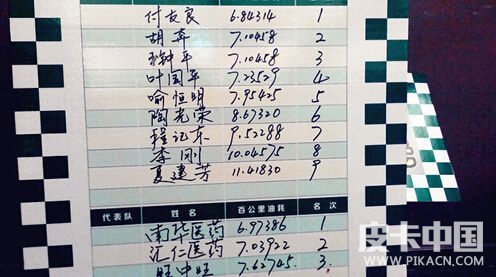 付友良 6.84314 1
胡奔 7.10458 2
钟平 7.10458 3
叶国平 7.23529 4
喻恒明 7.95425 5
陶光荣 8.67320 6
程记东 9.52288 7
李刚 10.04575 8
夏建芳 11.41830 9
代表队 姓名 百公里油耗 名次
南华医药 6.97386 1
汇仁医药 7.03922 2
旺中旺 7.62745 3
皮卡中国
WWW.PIKACN.COM